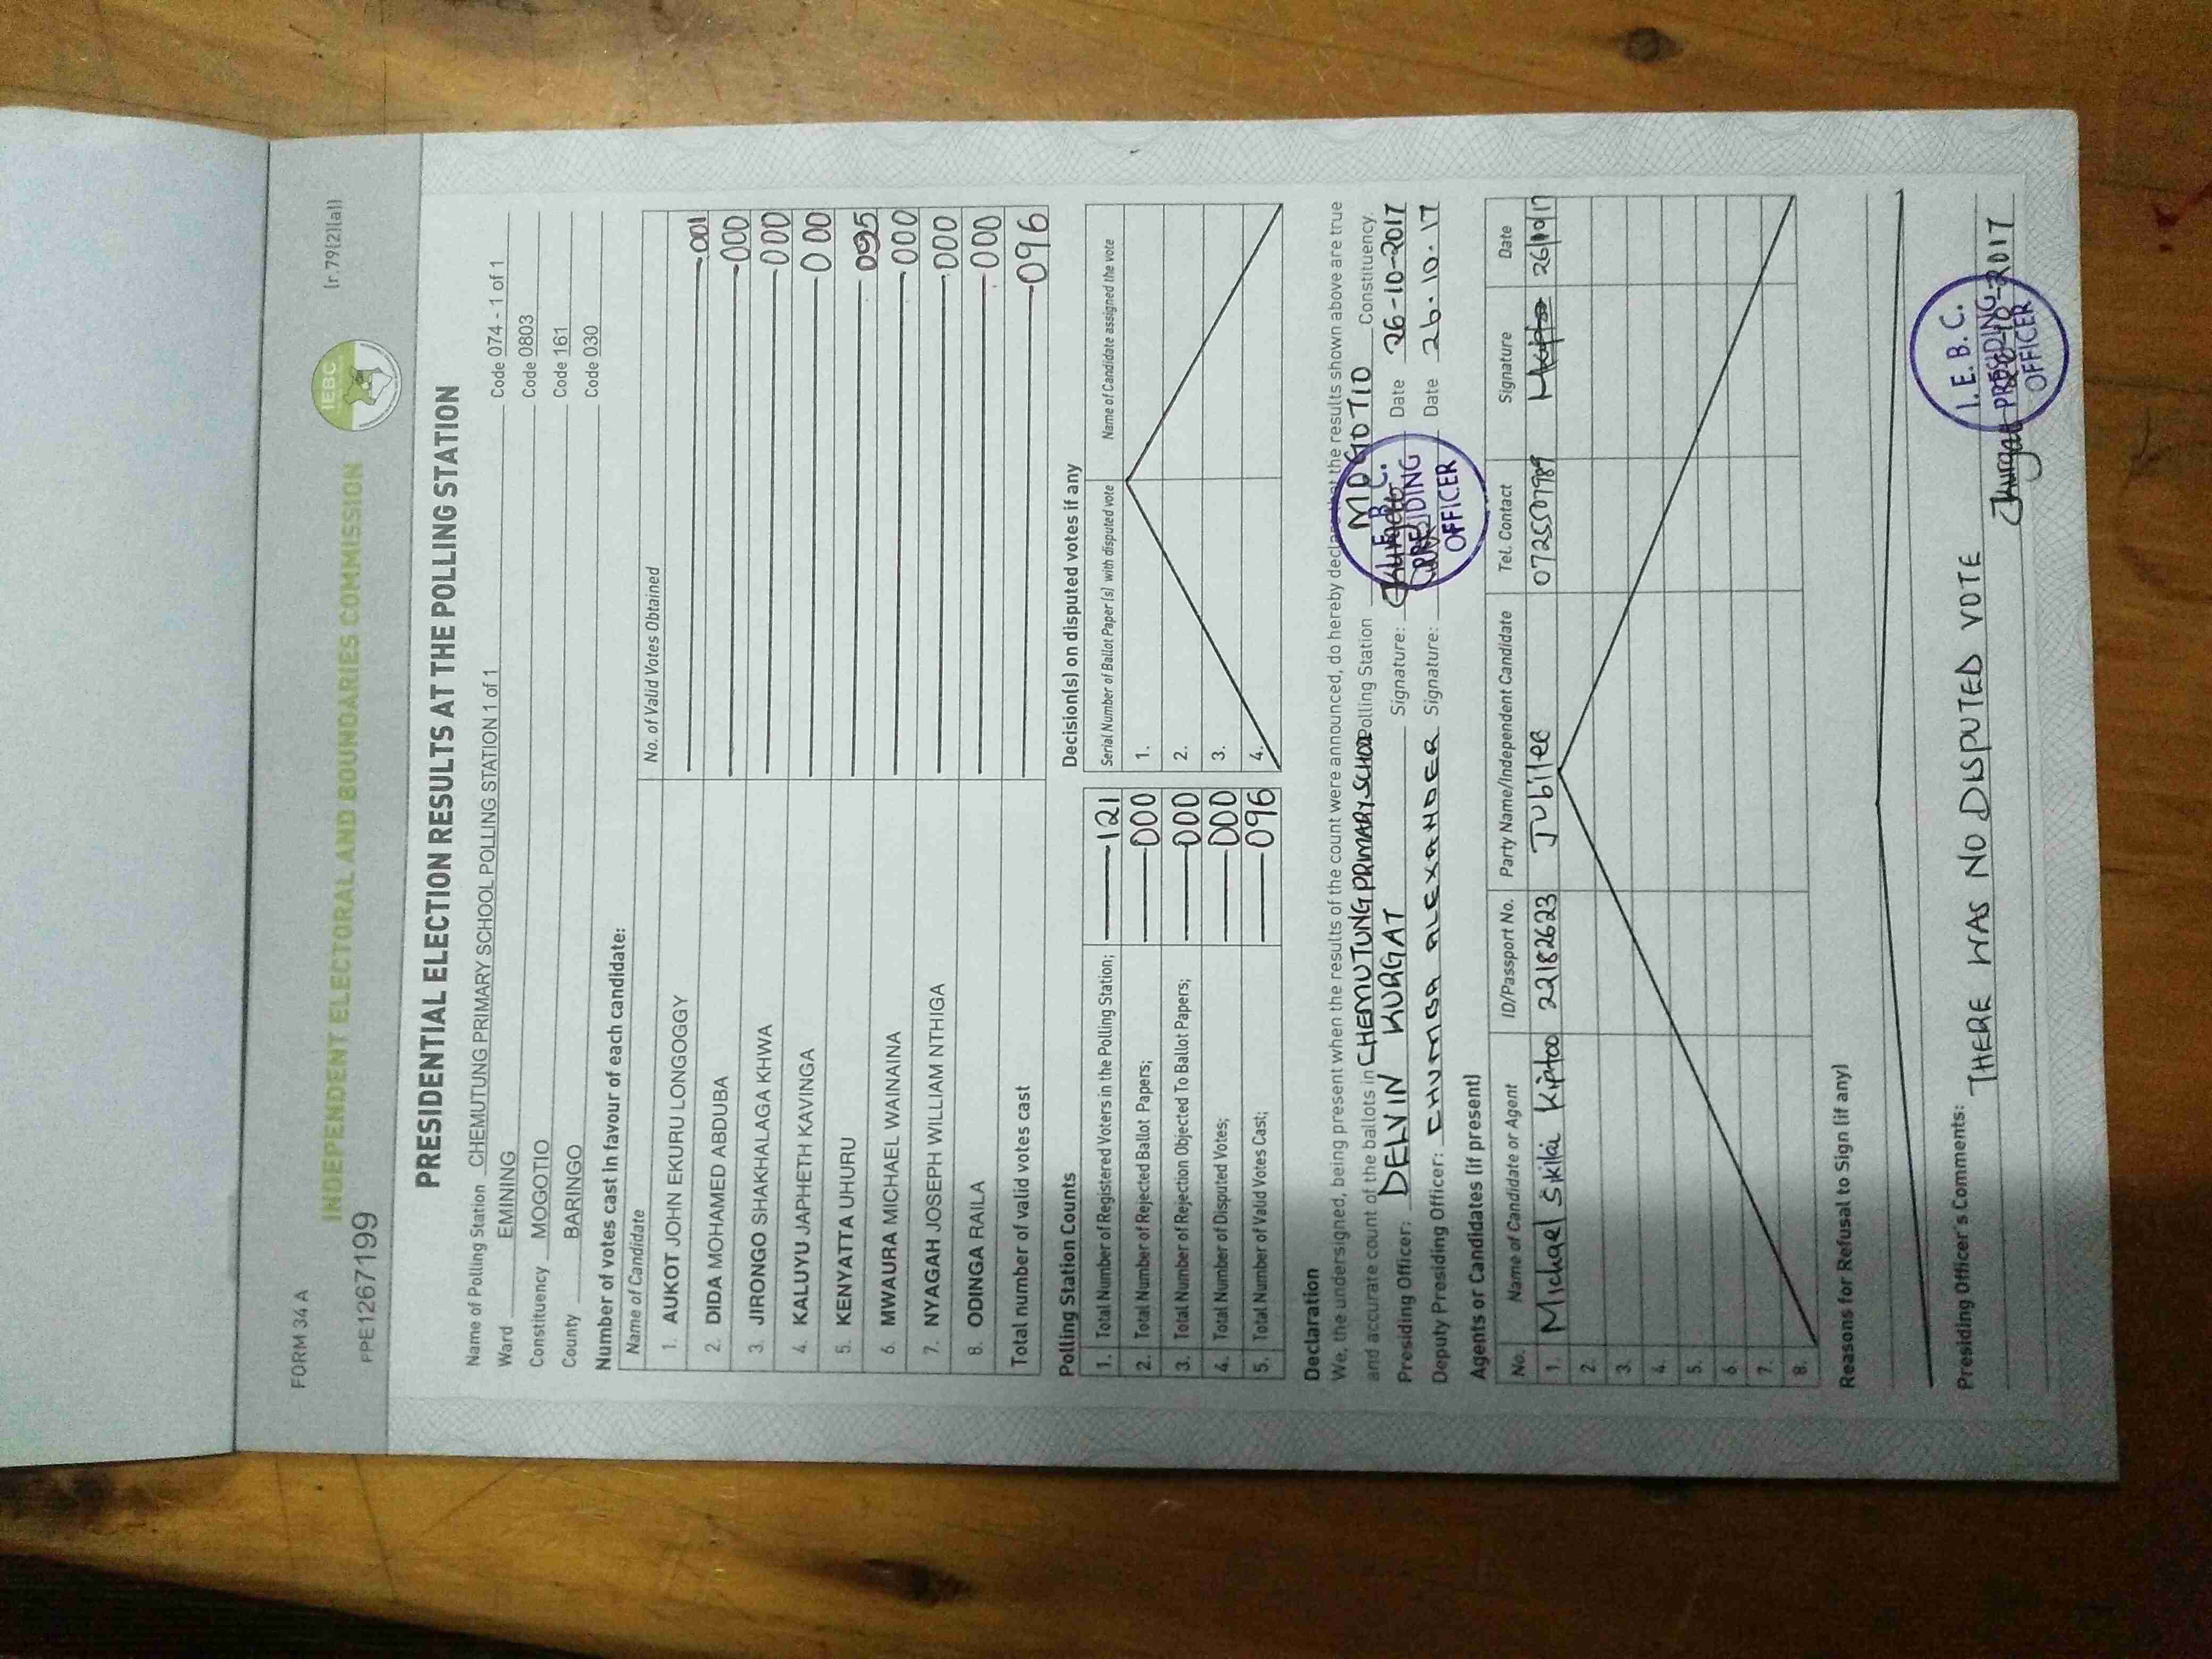 FORM 34 A
(r.79(2)(a))
IEBC
INDEPENDENT ELECTORAL AND BOUNDARIES COMMISSION
PPE1267199
PRESIDENTIAL ELECTION RESULTS AT THE POLLING STATION
Name of Polling Station CHEMUTUNG PRIMARY SCHOOL POLLING STATION 1 of 1 Code 074 - 1 of 1
Ward EMINING Code 0803
Constituency MOGOTIO Code 161
County BARINGO Code 030
Number of votes cast in favour of each candidate:
Name of Candidate No. of Valid Votes Obtained
1. AUKOT JOHN EKURU LONGOGGY 001
2. DIDA MOHAMED ABDUBA 000
3. JIRONGO SHAKHALAGA KHWA 000
4. KALUYU JAPHETH KAVINGA 000
5. KENYATTA UHURU 095
6. MWAURA MICHAEL WAINAINA 000
7. NYAGAH JOSEPH WILLIAM NTHIGA 000
8. ODINGA RAILA 000
Total number of valid votes cast 096
Polling Station Counts
1. Total Number of Registered Voters in the Polling Station; 121
2. Total Number of Rejected Ballot Papers; 000
3. Total Number of Rejection Objected To Ballot Papers; 000
4. Total Number of Disputed Votes; 000
5. Total Number of Valid Votes Cast; 096
Decision(s) on disputed votes if any
Serial Number of Ballot Paper(s) with disputed vote Name of Candidate assigned the vote
1.
2.
3.
4.
Declaration
We, the undersigned, being present when the results of the count were announced, do hereby declare that the results shown above are true
and accurate count of the ballots in CHEMUTUNG PRIMARY SCHOOL Polling Station MOGOTIO Constituency.
Presiding Officer: DELVIN KURGAT Signature: Date 26-10-2017
Deputy Presiding Officer: CHUMBA ALEXANDER Signature: Date 26.10.17
I. E. B. C.
PRESIDING
OFFICER
Agents or Candidates (if present)
No. Name of Candidate or Agent ID/Passport No. Party Name/Independent Candidate Tel. Contact Signature Date
1. Michael Sikilai Kiptoo 22182623 Jubilee 0725507989 26/10/17
2
3.
4.
5.
6
7.
8.
Reasons for Refusal to Sign (if any)
Presiding Officer's Comments: THERE WAS NO DISPUTED VOTE
I. E. B. C.
PRESIDING
OFFICER